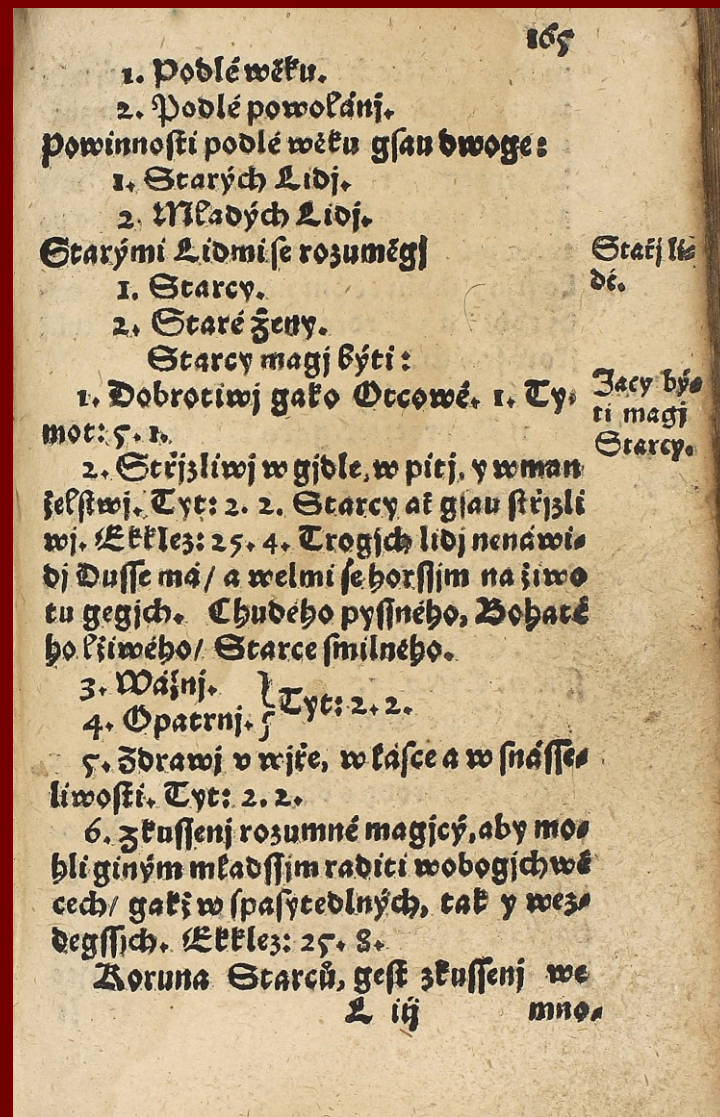 165
1. Podlé wěku.
2. Podlé powolánj.
Powinnosti podlé wěku gsau dwoge:
1. Starých Lidj.
2. Mladých Lidj.
Starými Lidmi se rozumẽgj
1. Starcy.
2. Staré Ženy.
Starcy magj býti:
1. Dobrotiwj gako Otcowé. 1. Ty-
mot: 5. 1.
2. Střjzliwj w gjdle, w pitj, y w man
želstwj. Tyt: 2. 2. Starcy ať gsau střjzli
wj. Ekklez: 25. 4. Trogjch lidj nenáwi-
dj Dusse má/ a welmi se horssjm na žiwo
tu gegjch. Chudého pyssného, Bohaté
ho lžiwého/ Starce smilného.
3. Wážnj.
4. Opatrnj. } Tyt: 2. 2.
5. Zdrawj v wjře, w lásce a w snásse-
liwosti. Tyt: 2. 2.
6. Zkussenj rozumné magjcý, aby mo-
hli giným mladssjm raditi w obogjch wě
cech/ gakž w spasytedlných, tak y wez-
degssjch. Ekklez: 25. 8.
Koruna Starců, gest zkussenj we
L iij mno-
Stařj li-
dé.
Jacy bý-
ti magj
Starcy.